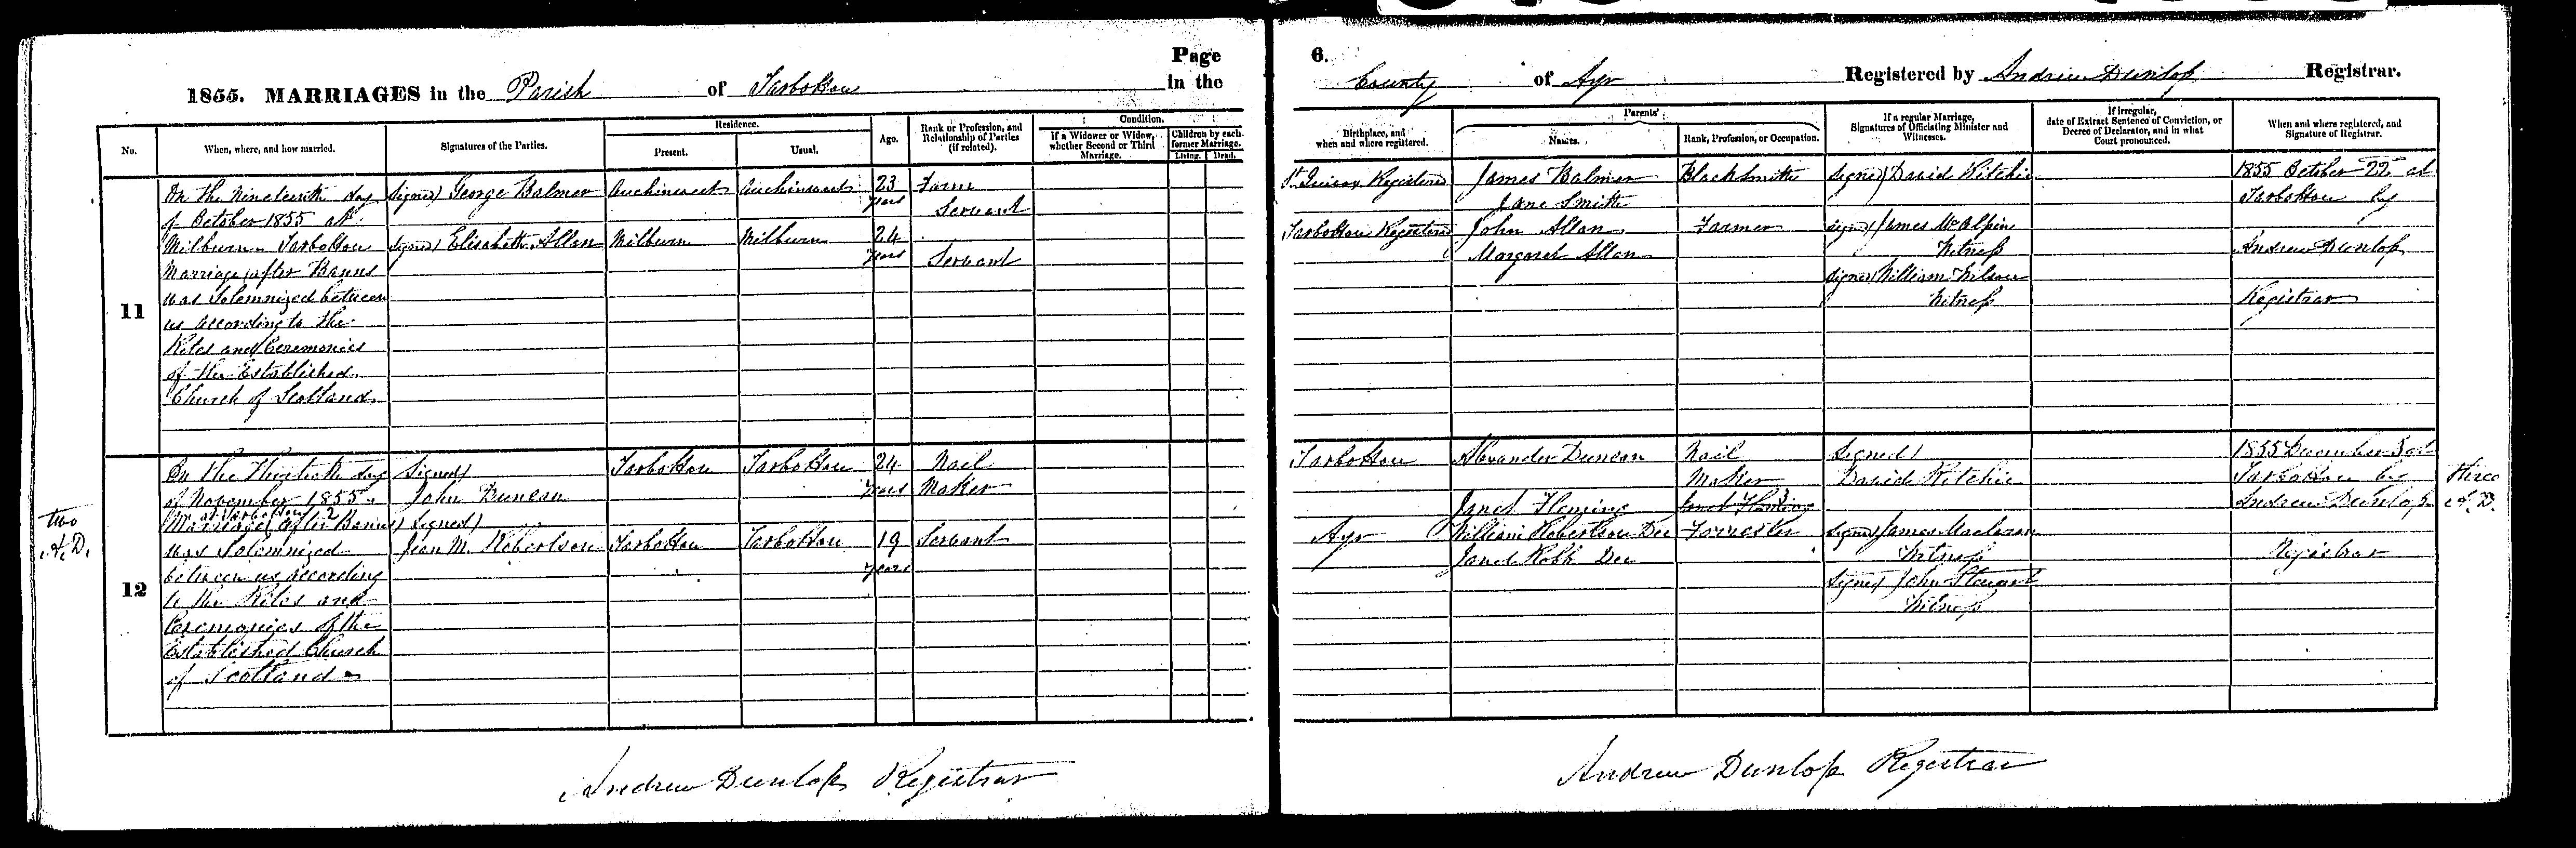 Page 6.
1855. MARRIAGES in the Parish of Tarbolton in the County of Ayr Registered by Andrew Dunlop Registrar.
No.
When, where, and how married.
Signatures of the Parties.
Residence.
Present.
Usual.
Age.
Rank or Profession, and
Relationship of Parties
(if related).
Condition.
If a Widower or Widow,
whether Second or Third
Marriage.
Children by each
former Marriage.
Living. Dead.
Birthplace, and
when and where registered.
Parents'
Names.
Rank, Profession, or Occupation.
If a regular Marriage,
Signatures of Officiating Minister and
Witnesses.
If irregular,
date of Extract Sentence of Conviction, or
Decree of Declarator, and in what
Court pronounced.
When and where registered, and
Signature of Registrar.
11
On the Nineteenth day
of October 1855 at
Milburn Tarbolton
Marriage after Banns
was Solemnized between
us according to the
Rites and Ceremonies
of the Established
Church of Scotland
Signed) George Balmer
signed) Elisabeth Allan
Milburn
Milburn
23
years
24
years
Farm
Servant
Servant
St Quivox Registered
Tarbolton Registered
James Balmer
Jane Smith
John Allan
Margaret Allan
Blacksmith
Farmer
signed) David Ritchie
signed) James McAlpine
Witness
signed) William Wilson
Witness
1855 October 22d at
Tarbolton by
Andrew Dunlop
Registrar
12
two
A. D.
On the Thirtieth day
of November 1855
at Tarbolton 2
Marriage (after Banns)
was Solemnized
between us according
to the Rites and
Ceremonies of the
Established Church
of Scotland
Signed)
John Duncan
Signed)
Jean M. Robertson
Tarbolton
Tarbolton
Tarbolton
Tarbolton
24
years
19
years
Nail
Maker
Servant
Tarbolton
Ayr
Alexander Duncan
Janet Fleming
William Robertson Dec
Janet Robb Dec
Nail
Maker
3
Janet Fleming
Forrester
Signed)
David Ritchie
signed) James Maclaren
Witness
signed) John Stewart
Witness
1855 December 3 at
Tarbolton by
Andrew Dunlop
Registrar
three
A. D.
Andrew Dunlop Registrar
Andrew Dunlop Registrar